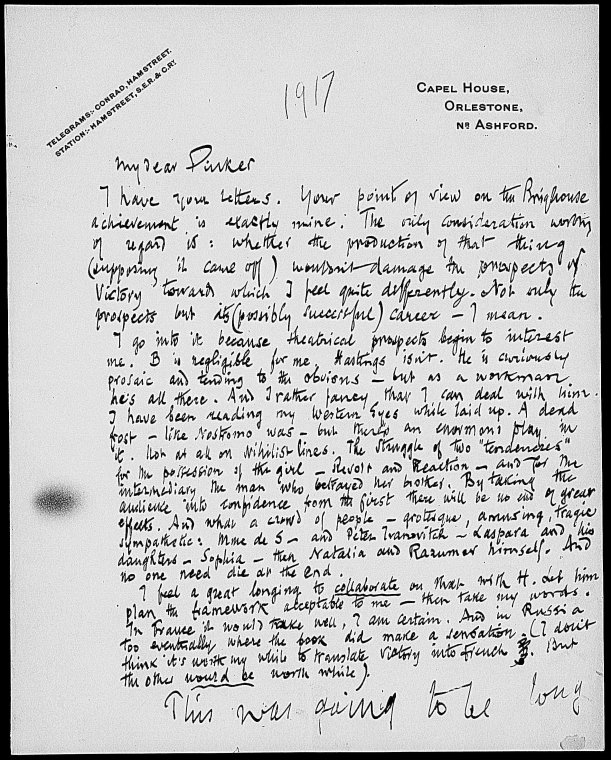 TELEGRAMS:- CONRAD, HAMSTREET.
STATION:- HAMSTREET, S.E.R. & C.RY.
1917
CAPEL HOUSE,
ORLESTONE,
NR ASHFORD.
My dear Pinker
I have your letters. Your point of view on the Brighouse
achievement is exactly mine. The only consideration worthy
of regard is: whether the production of that thing
(supposing it came off) wouldn't damage the prospects of
Victory towards which I feel quite differently. Not only the
prospects but its (possibly successful) career – I mean.
I go into it because theatrical prospects begin to interest
me. B is negligible for me, Hastings isn't. He is curiously
prosaic and tending to the obvious – but as a workman
he's all there. And I rather fancy that I can deal with him.
I have been reading my Western Eyes while laid up. A dead
frost – like Nostromo was – but there's an enormous play in
it. Not at all on Nihilist lines. The struggle of two "tendencies"
for the possession of the girl – Revolt and Reaction – and for the
intermediary the man who betrayed her brother. By taking the
audience into confidence from the first there will be no end of great
effects. And what a crowd of people – grotesque, amusing, tragic
sympathetic: Mme de S – and Peter Ivanovitch – Laspara and his
daughters – Sophia – then Natalia and Razumov himself. And
no one need die at the end.
I feel a great longing to collaborate on that with H. Let him
plan the framework acceptable to me – then take my words.
In France it would take well, I am certain. And in Russia
too eventually where the book did make a sensation. (I don't
think it's worth my while to translate Victory into French. But
the other would be worth while).
This was going to be long